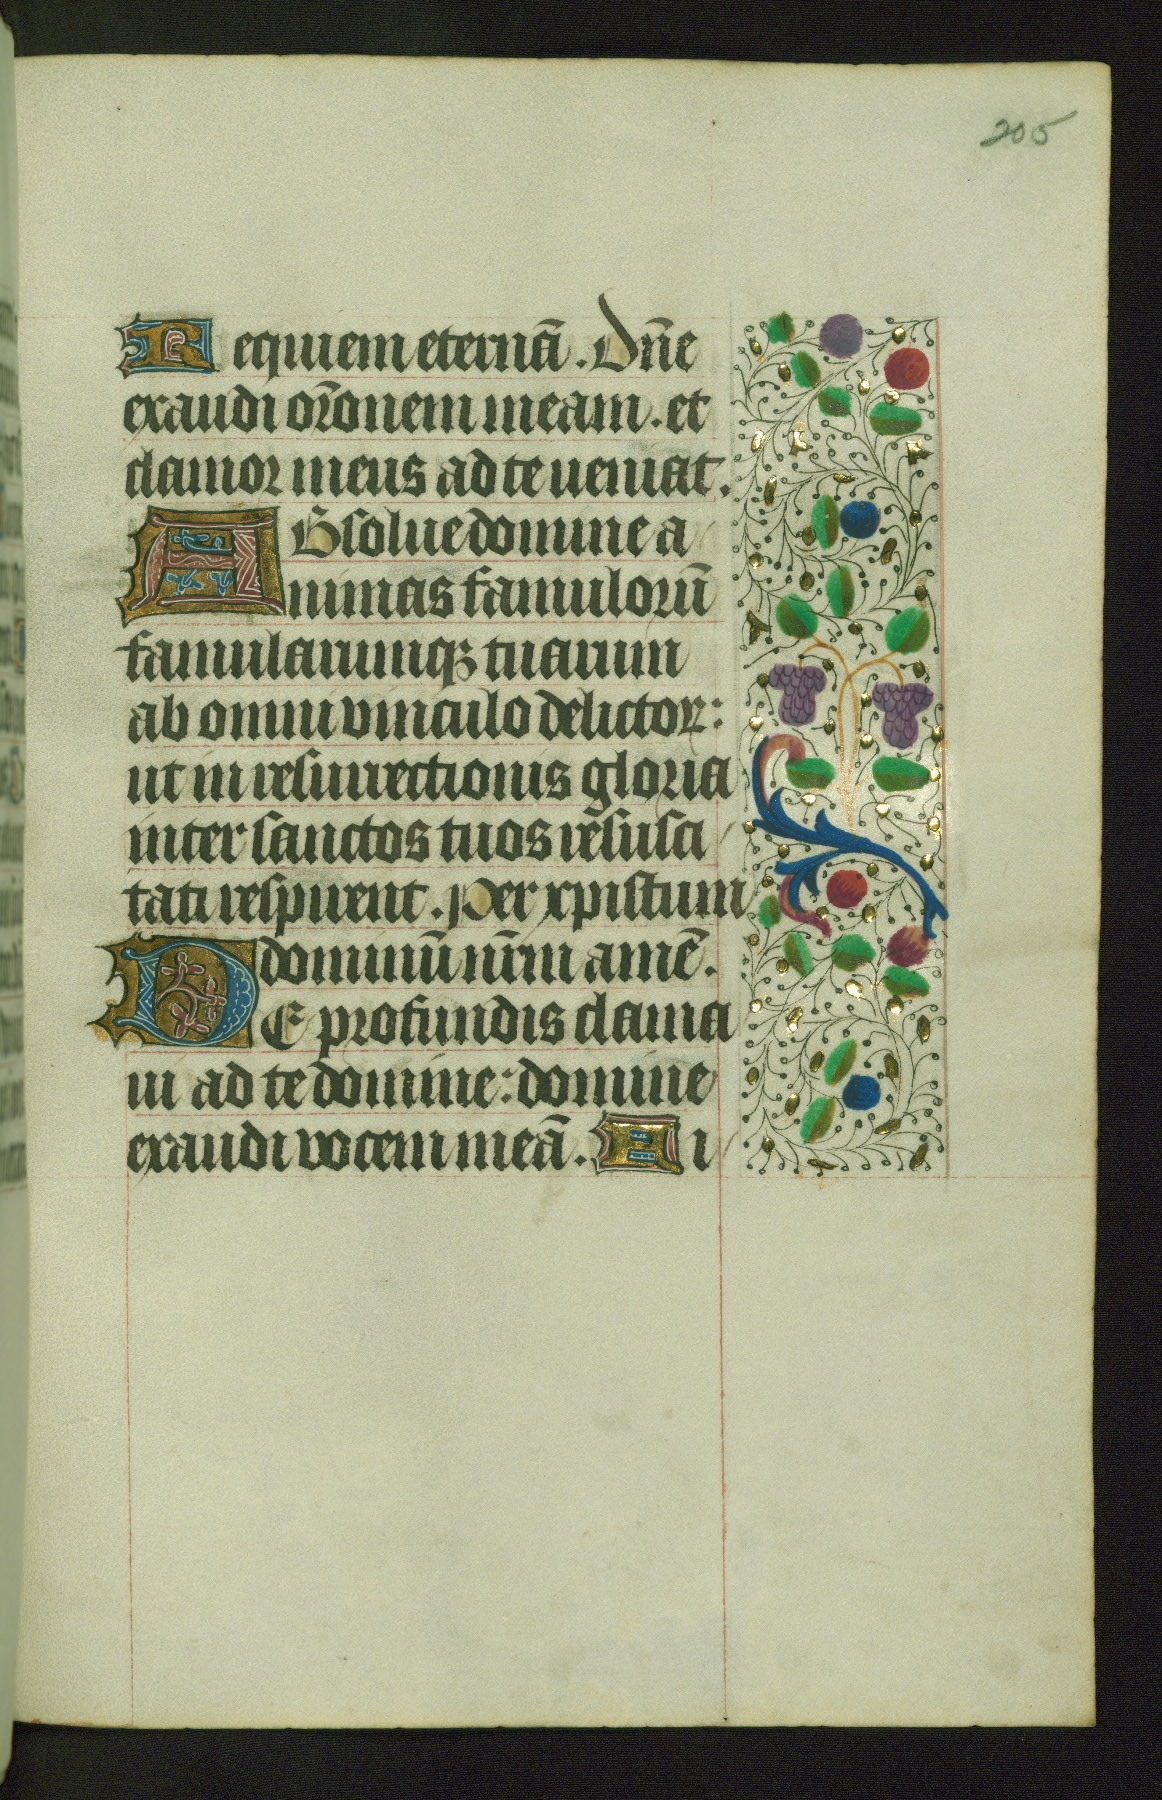 205
Requiem eternā. Dn̄e
exaudi or̄onem meam. et
clamor meus ad te ueniat.
ABsolue domine a
nimas famulorū
famularumqꝫ tuarum
ab omni vinculo delictoꝝ:
ut in resurrectionis gloria
inter sanctos tuos rēsusci
tati respirent. Per xpistum
dominū nr̄m amē.
DE profundis clama
ui ad te domine: domine
exaudi vocem meā. Fi